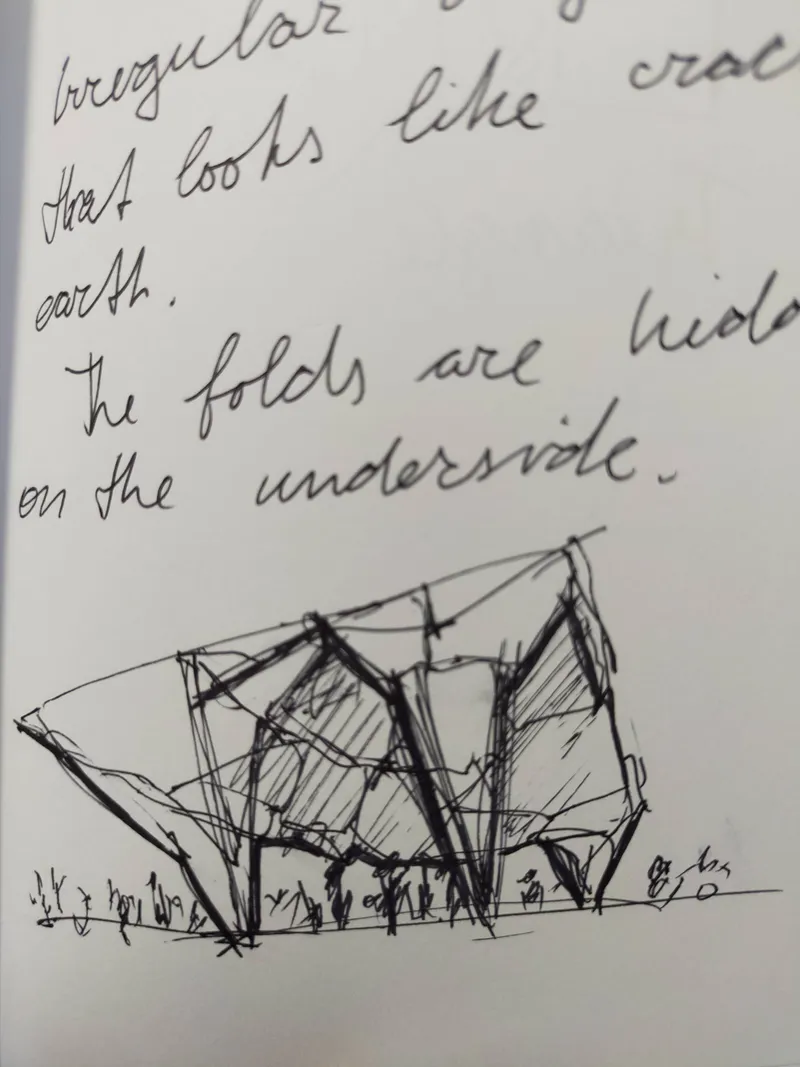 Irregular
that looks like crac
earth.
The folds are hidd
on the underside.